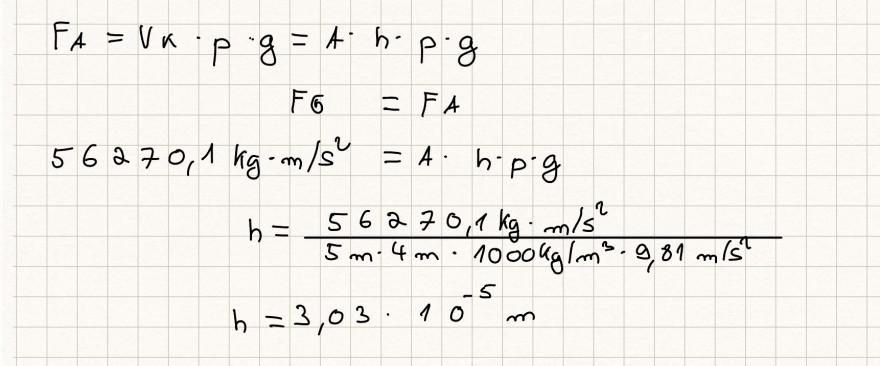 FA = VK · p · g = A · h · p · g
FG = FA
56270,1 kg · m/s² = A · h · p · g
h = 56270,1 kg · m/s² / 5 m · 4 m · 1000 kg/m³ · 9,81 m/s²
h = 3,03 · 10⁻⁵ m